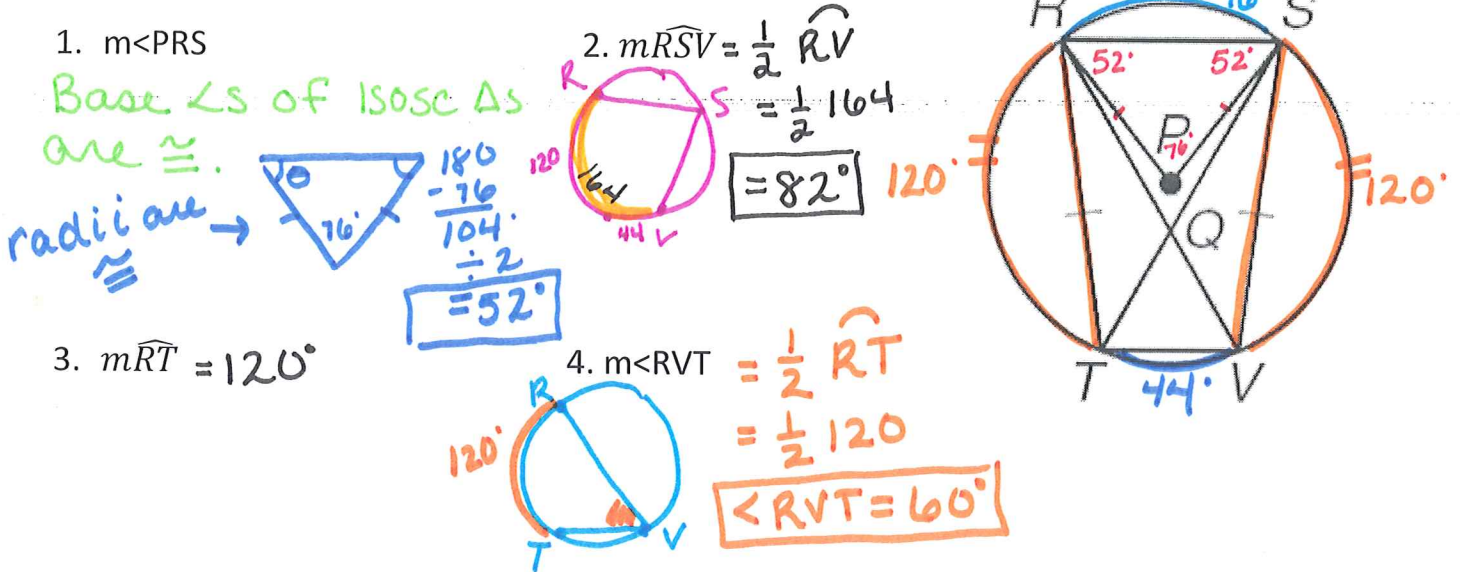 1. m<PRS
Base <s of Isosc Δs
are ≅.
radii are →
≅
θ
76°
180
-76
104°
÷2
=52°
2. mRSV = 1/2 RV
= 1/2 164
=82°
R
S
120
164
44
V
3. mRT = 120°
4. m<RVT = 1/2 RT
= 1/2 120
<RVT = 60°
R
120°
T
V
R
76
S
52°
52°
P
76°
120°
120°
Q
T
44°
V